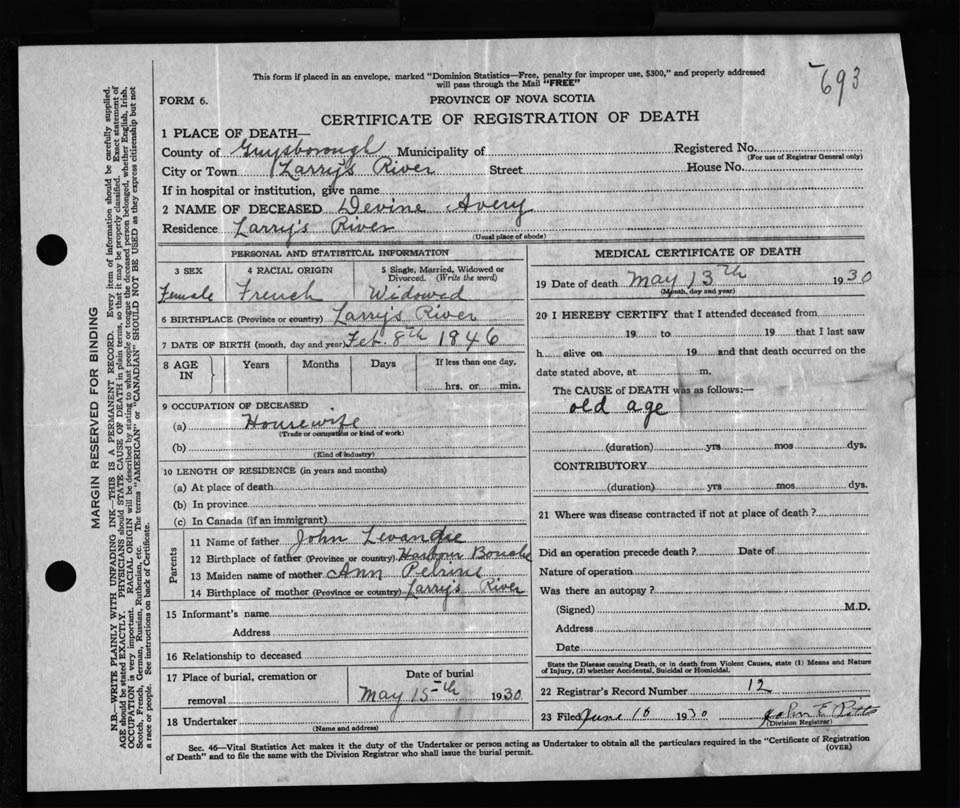 693
This form if placed in an envelope, marked "Dominion Statistics—Free, penalty for improper use, $300," and properly addressed
will pass through the Mail "FREE"
FORM 6.
PROVINCE OF NOVA SCOTIA
CERTIFICATE OF REGISTRATION OF DEATH
1 PLACE OF DEATH—
County of Guysborough Municipality of Registered No.
(For use of Registrar General only)
City or Town Larry's River Street House No.
If in hospital or institution, give name
2 NAME OF DECEASED Devine Avery
Residence Larry's River
(Usual place of abode)
PERSONAL AND STATISTICAL INFORMATION
3 SEX 4 RACIAL ORIGIN 5 Single, Married, Widowed or
Divorced. (Write the word)
Female French Widowed
6 BIRTHPLACE (Province or country) Larry's River
7 DATE OF BIRTH (month, day and year) Feb. 8th 1846
8 AGE IN Years Months Days If less than one day,
hrs. or min.
9 OCCUPATION OF DECEASED
(a) Housewife
(Trade or occupation or kind of work)
(b)
(Kind of industry)
10 LENGTH OF RESIDENCE (in years and months)
(a) At place of death
(b) In province
(c) In Canada (if an immigrant)
Parents
11 Name of father John Levandie
12 Birthplace of father (Province or country) Harbour Bouche
13 Maiden name of mother Ann Pelrine
14 Birthplace of mother (Province or country) Larry's River
15 Informant's name
Address
16 Relationship to deceased
17 Place of burial, cremation or Date of burial
removal May 15th 1930
18 Undertaker
(Name and address)
MEDICAL CERTIFICATE OF DEATH
19 Date of Death May 13th 1930
(Month, day and year)
20 I HEREBY CERTIFY that I attended deceased from
19 to 19 that I last saw
h alive on 19 and that death occurred on the
date stated above, at m.
The CAUSE of DEATH was as follows:—
old age
(duration) yrs mos dys.
CONTRIBUTORY
(duration) yrs mos dys.
21 Where was disease contracted if not at place of death?
Did an operation precede death? Date of
Nature of operation
Was there an autopsy?
(Signed) M.D.
Address
Date
State the Disease causing Death, or in death from Violent Causes, state (1) Means and Nature
of Injury, (2) whether Accidental, Suicidal or Homicidal.
22 Registrar's Record Number 12
23 Filed June 18 1930 John E
(Division Registrar)
Sec. 46—Vital Statistics Act makes it the duty of the Undertaker or person acting as Undertaker to obtain all the particulars required in the "Certificate of Registration
of Death" and to file the same with the Division Registrar who shall issue the burial permit.
(OVER)
MARGIN RESERVED FOR BINDING
N.B.—WRITE PLAINLY WITH UNFADING INK—THIS IS A PERMANENT RECORD. Every item of information should be carefully supplied.
AGE should be stated EXACTLY. PHYSICIANS should STATE CAUSE OF DEATH in plain terms, so that it may be properly classified. Exact statement of
OCCUPATION is very important. RACIAL ORIGIN will be described by stating to what people or tongue the deceased person belonged, whether English, Irish,
Scotch, French, German, Russian, Ruthenian, etc. The terms "AMERICAN" or "CANADIAN" SHOULD NOT BE USED as they express citizenship but not
a race or people. See instructions on back of Certificate.